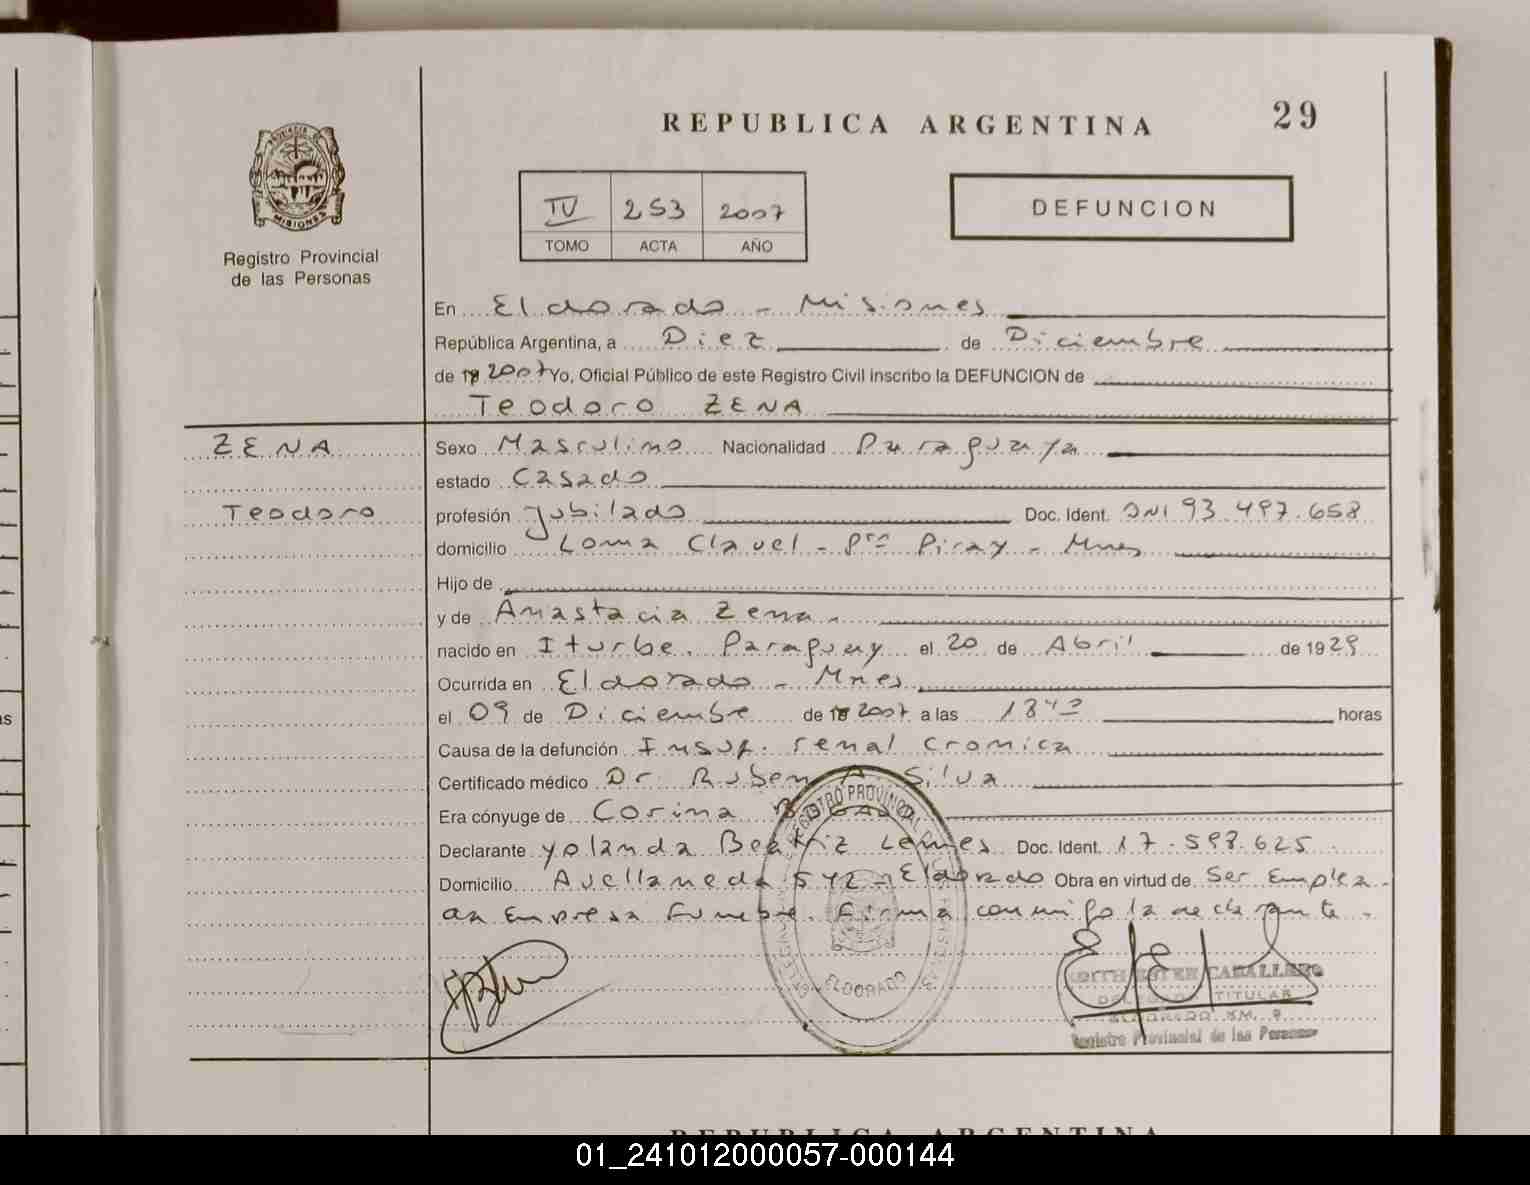 REPUBLICA ARGENTINA
29
PROVINCIA DE
MISIONES
Registro Provincial
de las Personas
IV 253 2007
TOMO ACTA AÑO
DEFUNCION
En Eldorado - Misiones
República Argentina, a Diez de Diciembre
de 19 2007 Yo, Oficial Público de este Registro Civil inscribo la DEFUNCION de
Teodoro ZENA
ZENA
Teodoro
Sexo Masculino Nacionalidad Paraguaya
estado Casado
profesión Jubilado Doc. Ident. DNI 93.497.658
domicilio Loma Clavel - Pto Piray - Mnes
Hijo de
y de Anastacia Zena.
nacido en Iturbe. Paraguay el 20 de Abril de 1929
Ocurrida en Eldorado - Mnes
el 09 de Diciembre de 19 2007 a las horas
Causa de la defunción Insuf. renal cronica
Certificado médico Dr. Ruben A Silva
Era cónyuge de Corina
Declarante Yolanda Beatriz Lemes Doc. Ident. 17.598.625
Domicilio Avellaneda 542 - Eldorado Obra en virtud de Ser Emplea-
da Empresa Funebre. Firma conmigo la declarante.
REGISTRO PROVINCIAL DE LAS PERSONAS
ELDORADO
EDITH ESTER CABALLERO
DELEGADO TITULAR
ELDORADO KM. 9
Registro Provincial de las Personas
REPUBLICA ARGENTINA
01_241012000057-000144